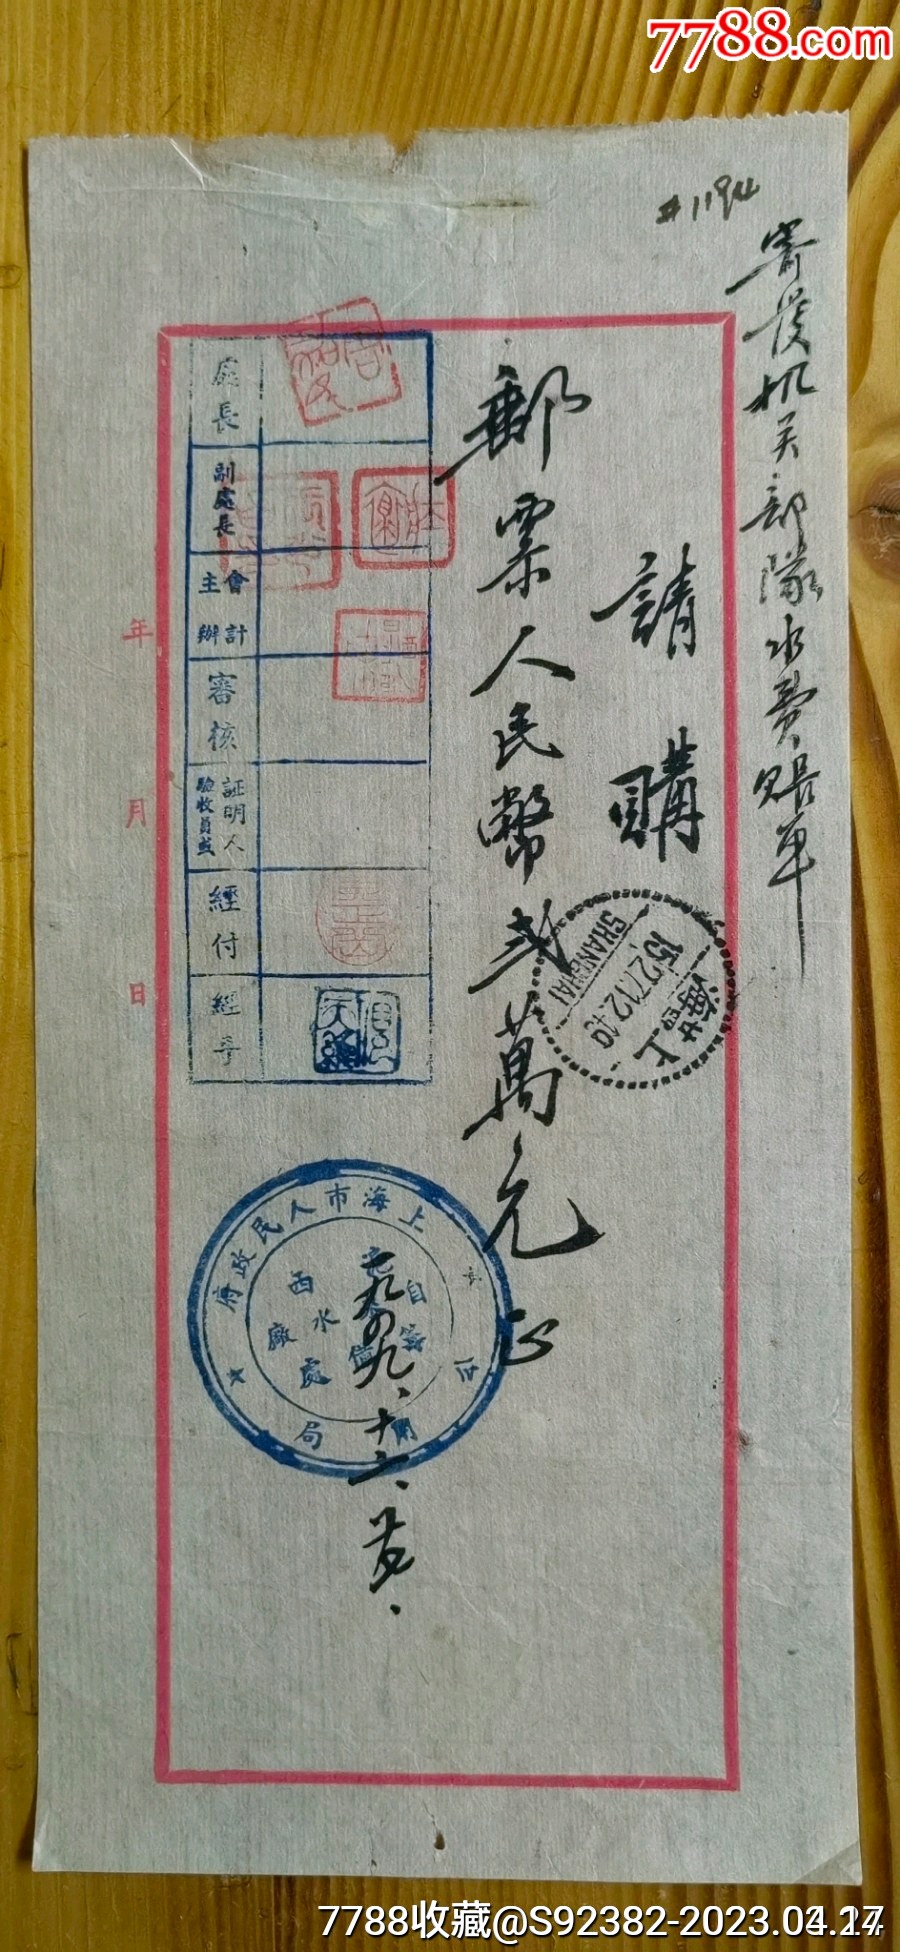 7788.com
#1194
寄发机关部隊水费賬单
請購
郵票人民幣弍萬元正
一九四九、十二、廿七、
處長
副處長
會計主辦
審核
証明人
驗收員或
經付
經手
年月日
上海
SHANGHAI
上海市人民政府
局
西水廠
處
7788收藏@S92382-2023.04.17